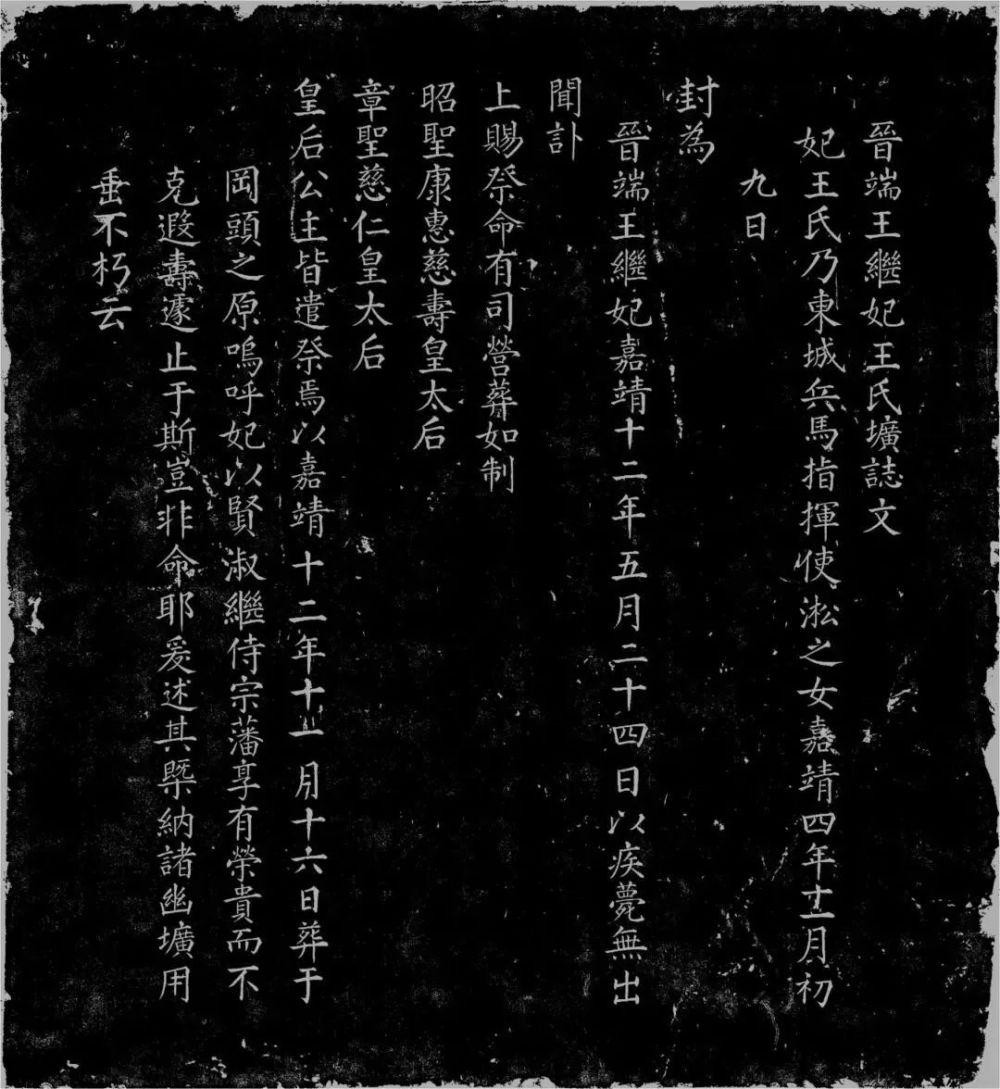 晉端王繼妃王氏壙誌文
妃王氏乃東城兵馬指揮使淞之女嘉靖四年十一月初
九日
封為
晉端王繼妃嘉靖十二年五月二十四日以疾薨無出
聞訃
上賜祭命有司營葬如制
昭聖康惠慈壽皇太后
章聖慈仁皇太后
皇后公主皆遣祭焉以嘉靖十二年十一月十六日葬于
岡頭之原嗚呼妃以賢淑繼侍宗藩享有榮貴而不
克遐壽遽止于斯豈非命耶爰述其槩納諸幽壙用
垂不朽云